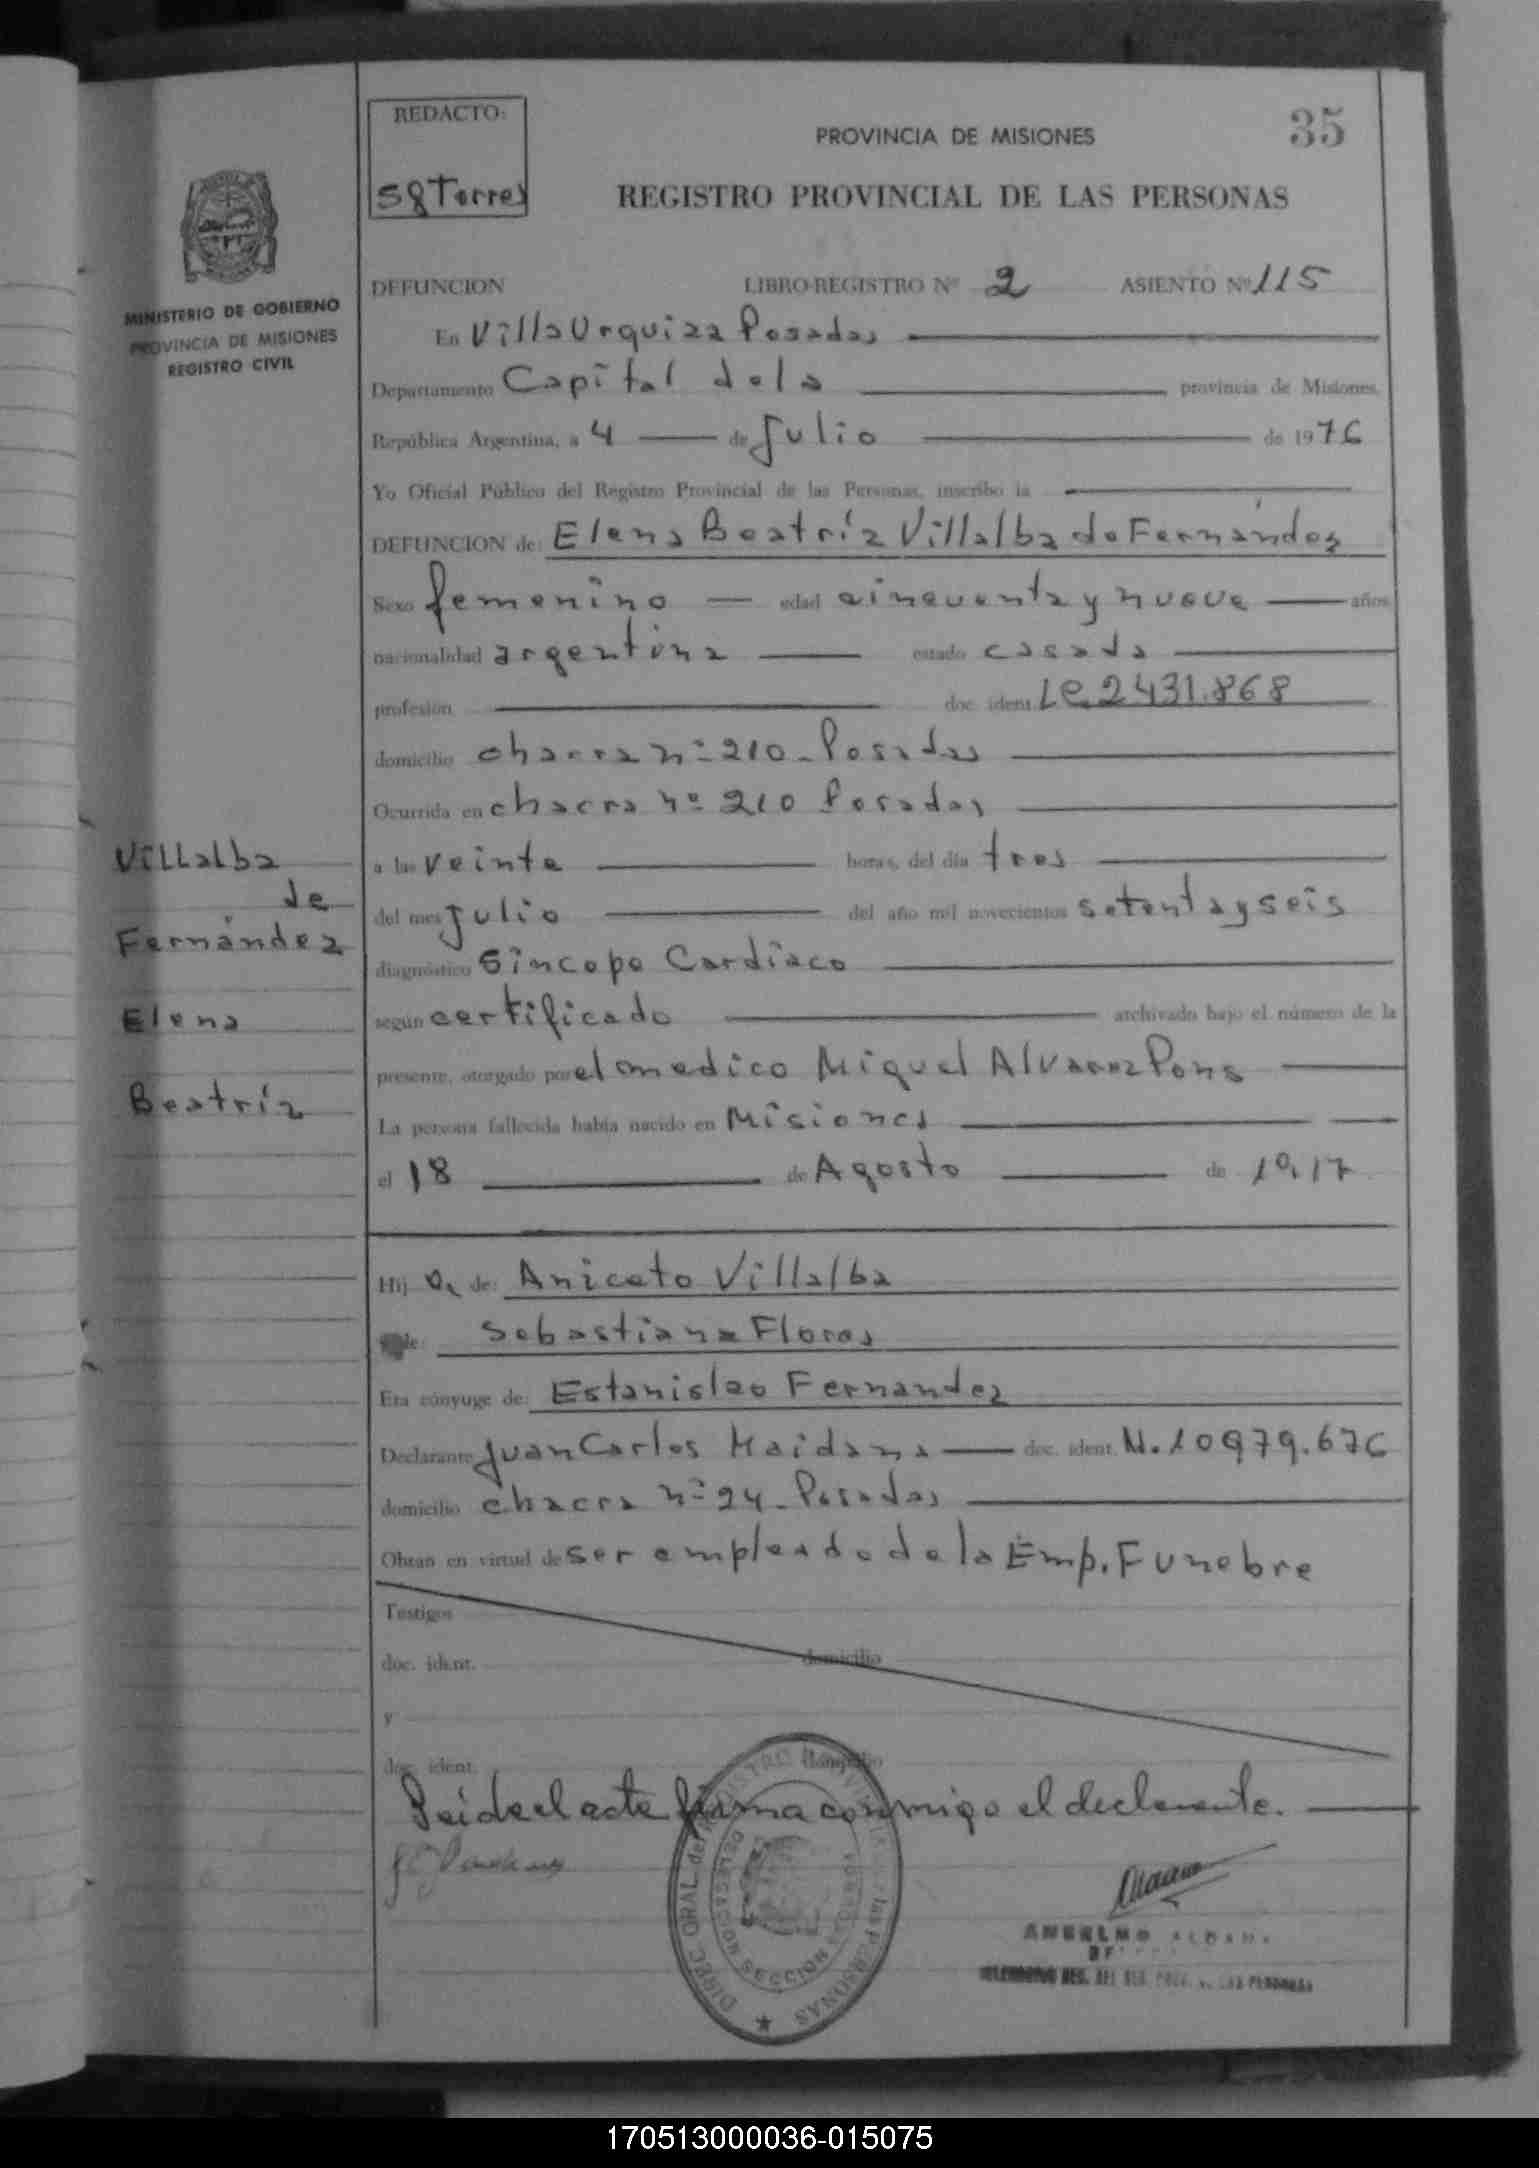 REDACTO:
PROVINCIA DE MISIONES
35
SgTorres
REGISTRO PROVINCIAL DE LAS PERSONAS
MINISTERIO DE GOBIERNO
PROVINCIA DE MISIONES
REGISTRO CIVIL
DEFUNCION LIBRO-REGISTRO Nº 2 ASIENTO Nº 115
En Villa Urquiza Posadas
Departamento Capital dela provincia de Misiones,
República Argentina, a 4 de Julio de 1976
Yo Oficial Público del Registro Provincial de las Personas, inscribo la
DEFUNCION de: Elena Beatríz Villalba de Fernández
Sexo femenino edad cincuenta y nueve años
nacionalidad argentina estado casada
profesión doc. ident. LC 2431.868
domicilio chacra nº 210 - Posadas
Ocurrida en chacra nº 210 Posadas
a las veinte horas, del día tres
del mes Julio del año mil novecientos setenta y seis
diagnóstico Síncope Cardíaco
según certificado archivado bajo el número de la
presente, otorgado por el medico Miguel Alvarez Pons
La persona fallecida había nacido en Misiones
el 18 de Agosto de 1917
Villalba
de
Fernández
Elena
Beatríz
Hij a de: Aniceto Villalba
de: Sebastiana Flores
Era cónyuge de: Estanislao Fernandez
Declarante Juan Carlos Maidana doc. ident. N. 10979.676
domicilio chacra nº 24 - Posadas
Obran en virtud de ser empleado de la Emp. Funebre
Testigos
doc. ident. domicilio
y
doc. ident. domicilio
Leida el acta firma conmigo el declarante.
DIREC. GRAL. del REGISTRO PROVINCIAL de las PERSONAS
SECCION
ANSELMO ALDANA
170513000036-015075